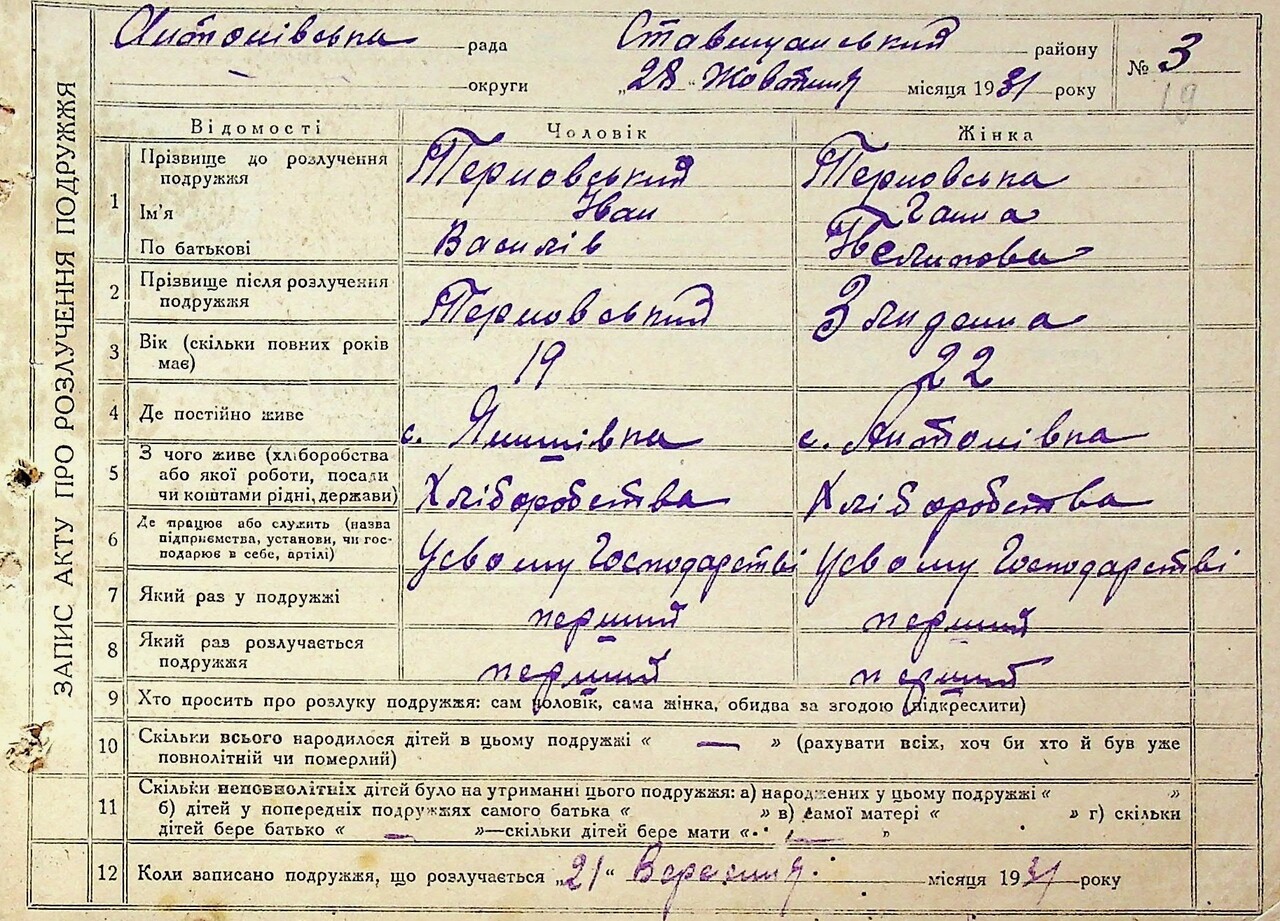 Антонівська рада Ставищанський району № 3
19
округи „28“ Жовтня місяця 1931 року
ЗАПИС АКТУ ПРО РОЗЛУЧЕННЯ ПОДРУЖЖЯ
Відомості Чоловік Жінка
1 Прізвище до розлучення подружжя Терновський Терновська
Ім'я Іван Ганна
По батькові Василів
2 Прізвище після розлучення подружжя Терновський
3 Вік (скільки повних років має) 19 22
4 Де постійно живе с. с. Антонівка
5 З чого живе (хліборобства або якої роботи, посади чи коштами рідні, держави) Хліборобства Хліборобства
6 Де працює або служить (назва підприємства, установи, чи господарює в себе, артілі) Усвому Господарстві Усвому Господарстві
7 Який раз у подружжі перший перший
8 Який раз розлучається подружжя перший перший
9 Хто просить про розлуку подружжя: сам чоловік, сама жінка, обидва за згодою (підкреслити)
10 Скільки всього народилося дітей в цьому подружжі « — » (рахувати всіх, хоч би хто й був уже
повнолітній чи померлий)
11 Скільки неповнолітніх дітей було на утриманні цього подружжя: а) народжених у цьому подружжі « »
б) дітей у попередніх подружжях самого батька « » в) самої матері « » г) скільки
дітей бере батько « — »—скільки дітей бере мати « — »
12 Коли записано подружжя, що розлучається „21“ Вересня місяця 1931 року